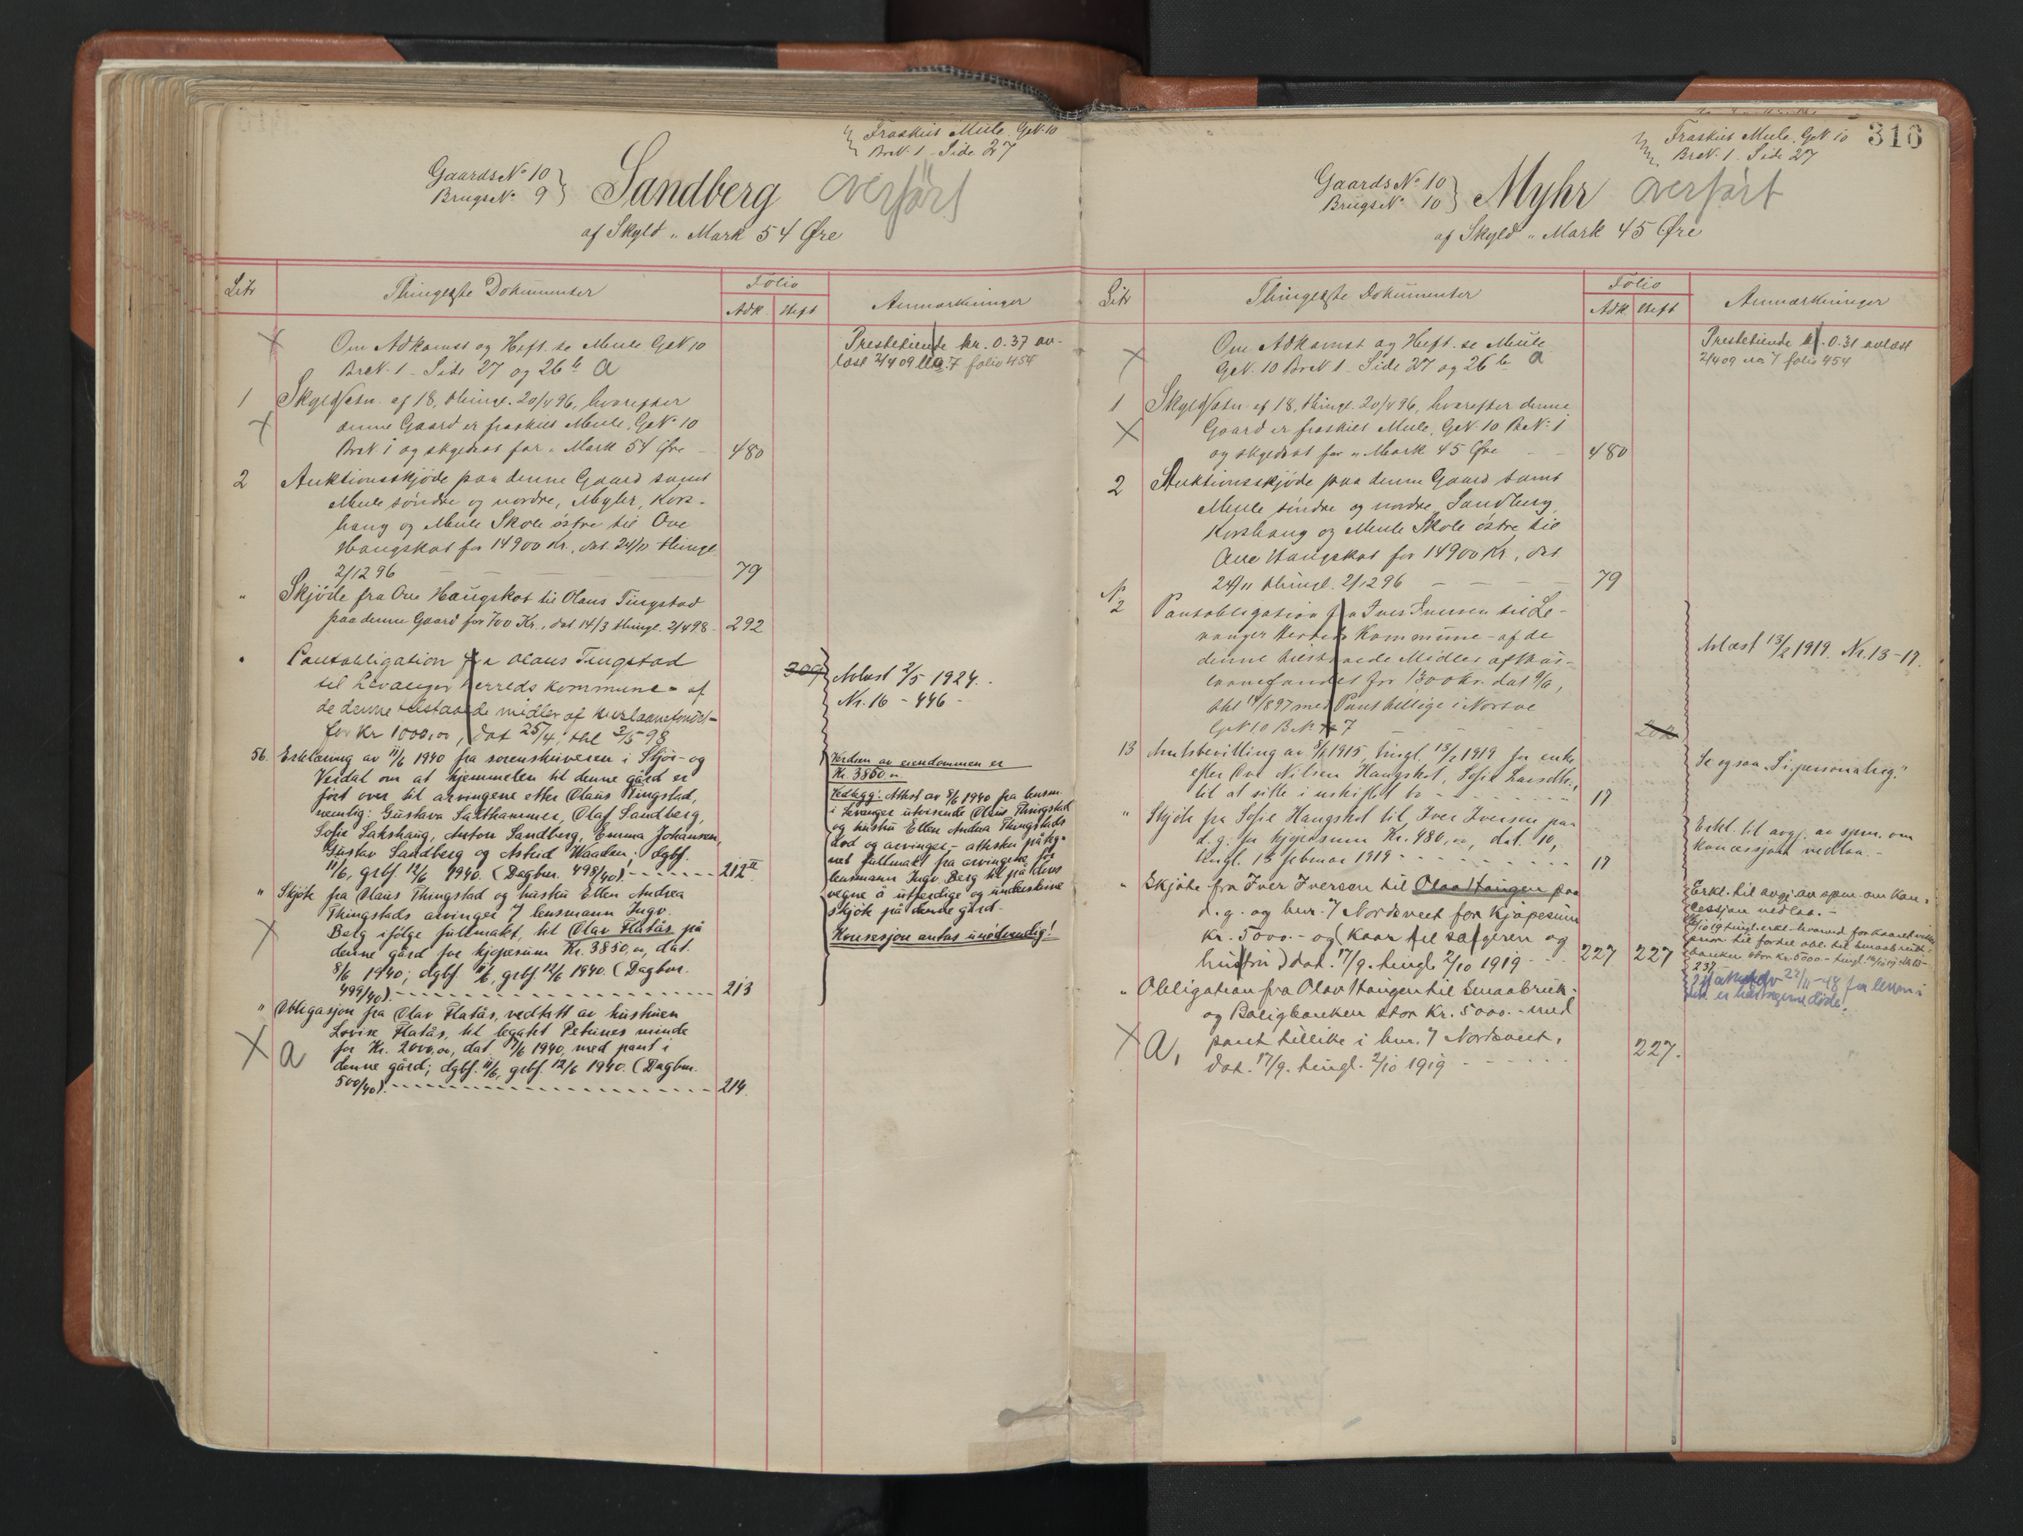 Fraskilt Mule. G.N. 10
Br.N. 1. Side 27
Gaards No 10
Brugs No 9
Sandberg overført
af Skyld „ Mark 54 Øre
Litr
Thinglæste Dokumenter
Folio
Adk. Heft
Anmærkninger
Om Adkomst og Heft. se Mule G.N. 10
Br.N. 1 - Side 27 og 26b a
Prestetiende kr. 0.37 av-
løst 2/4 09 7 folio 454
1 Skyldsetn. af 18, thingl. 20/4 96, hvorefter
denne Gaard er fraskilt Mule, G.N. 10
Br.N. 1 og skyldsat for „ Mark 54 Øre - 480
2 Auktionsskjøde paa denne Gaard samt
Mule søndre og nordre, Myhr, Kors-
haug og Mule Skole østre til Ove
Haugskot for 14900 Kr., dat. 24/11 thingl.
2/12 96 79
" Skjøde fra Ove Haugskot til Olaus Tingstad
paa denne Gaard for 700 Kr., dat 14/3 thingl. 2/4 98 - 292
" Pantobligation fra Olaus Tingstad
til Levanger herreds kommune - af
de denne tilstaaede midler af
for Kr 1000,00, dat 25/4, thl 3/5 98
Avlæst 2/5 1924.
Nr. 16 - 446 -
56. Erklæring av 11/6 1940 fra sorenskriveren i Stjør- og
Verdal om at hjemmelen til denne gård er
ført over til arvingene etter Olaus Tingstad,
nemlig: Gustava Salthammer, Olaf Sandberg,
Sofie Sakshaug, Anton Sandberg, Emma Johansen,
Gustav Sandberg og Astrid Waaden; dgbf.
11/6, grbf. 12/6 1940. (Dagbnr. 498/40) - 212 II
Verdien av eiendommen er
Kr. 3850,00
Vedlegg: Attest av 8/6 1940 fra lensm.
i Levanger utvisende Olaus Thingstad
og hustru Ellen Andrea Thingstads
død og arvinger, - attestert påteg-
net fullmakt fra arvingene for
lensmann Ingv. Berg til på deres
vegne å utferdige og underskrive
skjøte på denne gård.
Konsesjon antas unødvendig!
" Skjøte fra Olaus Thingstad og hustru Ellen Andrea
Thingstads arvinger v/ lensmann Ingv.
Berg ifølge fullmakt, til Olav Flatås på
denne gård for kjøpesum Kr. 3850,00, dat.
8/6 1940; dgbf. 11/6, grbf 12/6 1940. (Dagbnr.
499/40). - 213
" Obligasjon fra Olav Flatås, vedtatt av hustruen
Lovise Flatås, til legatet Petrines minde
a for Kr. 2000,00, dat. 11/6 1940, med pant i
denne gård; dgbf. 11/6, grbf. 12/6 1940. (Dagbnr.
500/40). - 214.
316
Fraskilt Mule. G.N. 10
Br.N. 1. Side 27
Gaards No 10
Brugs No 10
Myhr overført
af Skyld „ Mark 45 Øre
Litr
Thinglæste Dokumenter
Folio
Adk. Heft
Anmærkninger
Om Adkomst og Heft. se Mule
G.N. 10 Br.N. 1 - Side 27 og 26b a
Prestetiende kr. 0.31 avløst
2/4 09 7 folio 454
1 Skyldsetn. af 18, thingl. 20/4 96, hvorefter denne
Gaard er fraskilt Mule, G.N. 10 Br.N. 1
og skyldsat for „ Mark 45 Øre - - 480
2 Auktionsskjøde paa denne Gaard samt
Mule søndre og nordre, Sandberg,
Korshaug og Mule Skole østre til
Ove Haugskot for 14900 Kr., dat
24/11 thingl. 2/12 96 - 79
N 2 Pantobligation fra Iver Iversen til Le-
vanger Herreds Kommune - af de
denne tilstaaede Midler af
for 1300 kr. dat 9/6,
1897 med Pant tillige i
G.N. 10 B.N. 7
Avlæst 13/2 1919. Nr. 13-17.
13 Amtsbevilling av 8/2 1915, tingl. 13/2 1919 for enke
efter Ove Nilsen Haugskot, Sofie Larsdtr.,
til at sitte i uskiftet bo - 17
Se ogsaa "Si.personalreg."
" Skjøte fra Sofie Haugskot til Iver Iversen paa
d. g. for kjøpesum Kr. 480,00, dat. 10,
tingl. 13 februar 1919 - 17
Erkl. til avgj. av spm. om
koncessjon vedlaa. -
" Skjøte fra Iver Iversen til Olav Stangen paa
d. g. og bnr. 7 Nordsveet for kjøpesum
kr. 5000.- og (kaar til sælgeren og
hustru) dat. 17/9. tingl. 2/10 1919 - 227 227
Erkl. til avgj. av spm. om kon-
cessjon vedlaa. -
" Obligation fra Olav Stangen til Smaabruk-
og Boligbanken stor Kr. 5000.- med
a, pant tillike i bnr. 7 Nordsveet,
dat. 17/9. tingl. 2/10 1919 - 227.